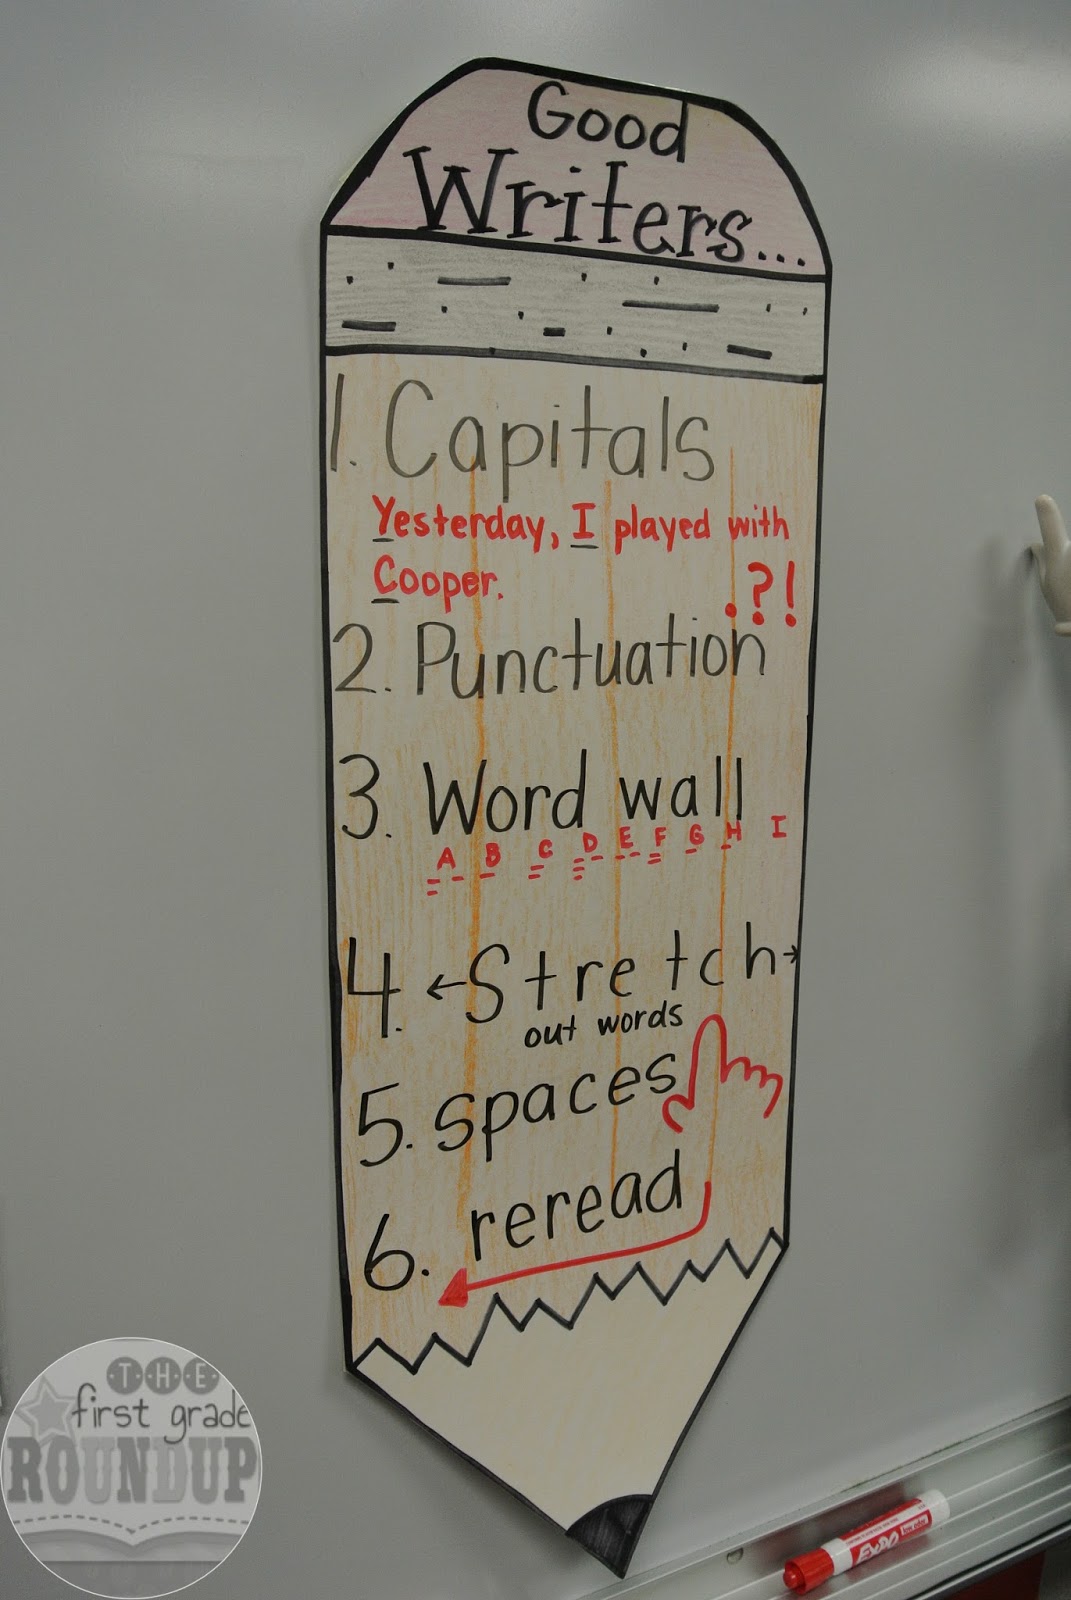 Good
Writers...
1. Capitals
Yesterday, I played with
Cooper.
. ? !
2. Punctuation
3. Word wall
A B C D E F G H I
4. ←Stretch→
out words
5. spaces
6. reread
THE
first grade
ROUNDUP
EXPO